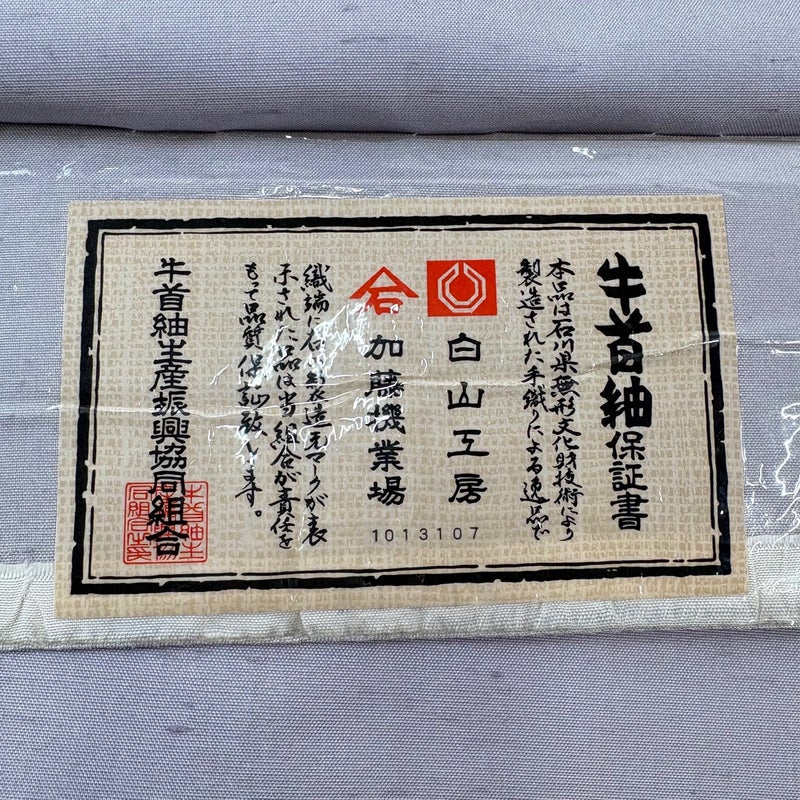 牛首紬保証書
本品は石川県無形文化財技術により
製造された手織りによる逸品で
白山工房
石
加藤機業場
1013107
織端に右の製造元マークが表
示された品は当組合が責任を
もって品質保証致します。
牛首紬生産振興協同組合